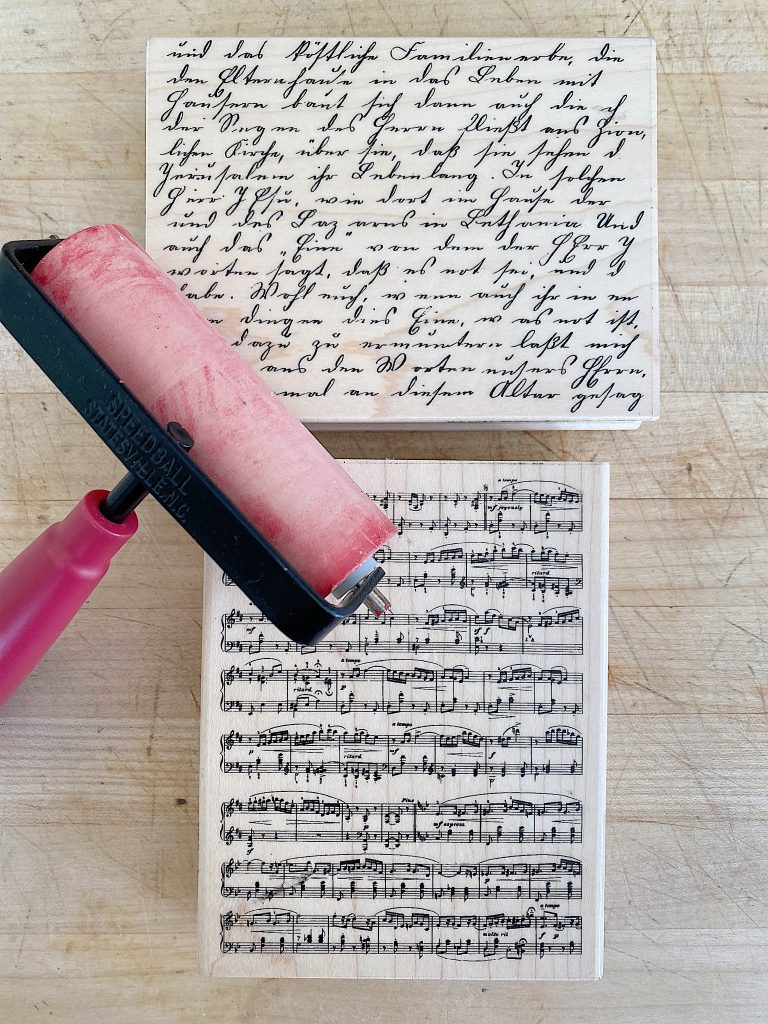 und das köstliche Familienerbe, die
den Elternhause in das Leben mit
Häusern baut sich dann auch die ch
der Segen des Herrn fließt aus Zion,
lichen Kirche, über sie, daß sie sehen d
Jerusalem ihr Lebenlang. In solchen
Herr JEsu, wie dort im Hause der
und des Lazarus in Bethania. Und
auch das „Eine" von dem der HErr J
worten sagt, daß es not sei, und d
habe. Wohl euch, wenn auch ihr in en
n dingen dies Eine, was not ist.
dazu zu ermuntern laßt mich
aus den Worten unsers HErrn,
mal an diesem Altar gesag
SPEEDBALL
STATESVILLE, N.C.
a tempo
mf joyously
ritard
mf
sf
a tempo
ritard.
p
a tempo
p
ritard.
mf
f
Fine
p
mf express.
sf
a tempo
molto rit
f
p